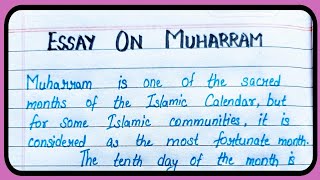 ESSAY ON MUHARRAM
Muharram is one of the sacred
months of the Islamic Calendar, but
for some Islamic communities, it is
considered as the most fortunate month.
The tenth day of the month is